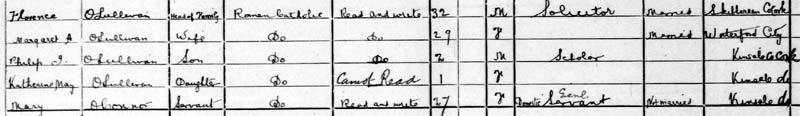 Florence O'Sullivan Head of Family Roman Catholic Read and write 32 M Solicitor Married Skibbereen Cork
Margaret A O'Sullivan Wife Do Do 29 F Married Waterford City
Philip I. O'Sullivan Son Do Do 2 M Scholar Kinsale Co Cork
Katherine May O'Sullivan Daughter Do Cannot Read 1 F Kinsale do
Mary O'Connor Servant Do Read and write 27 F Domestic Genl. Servant Not married Kinsale do